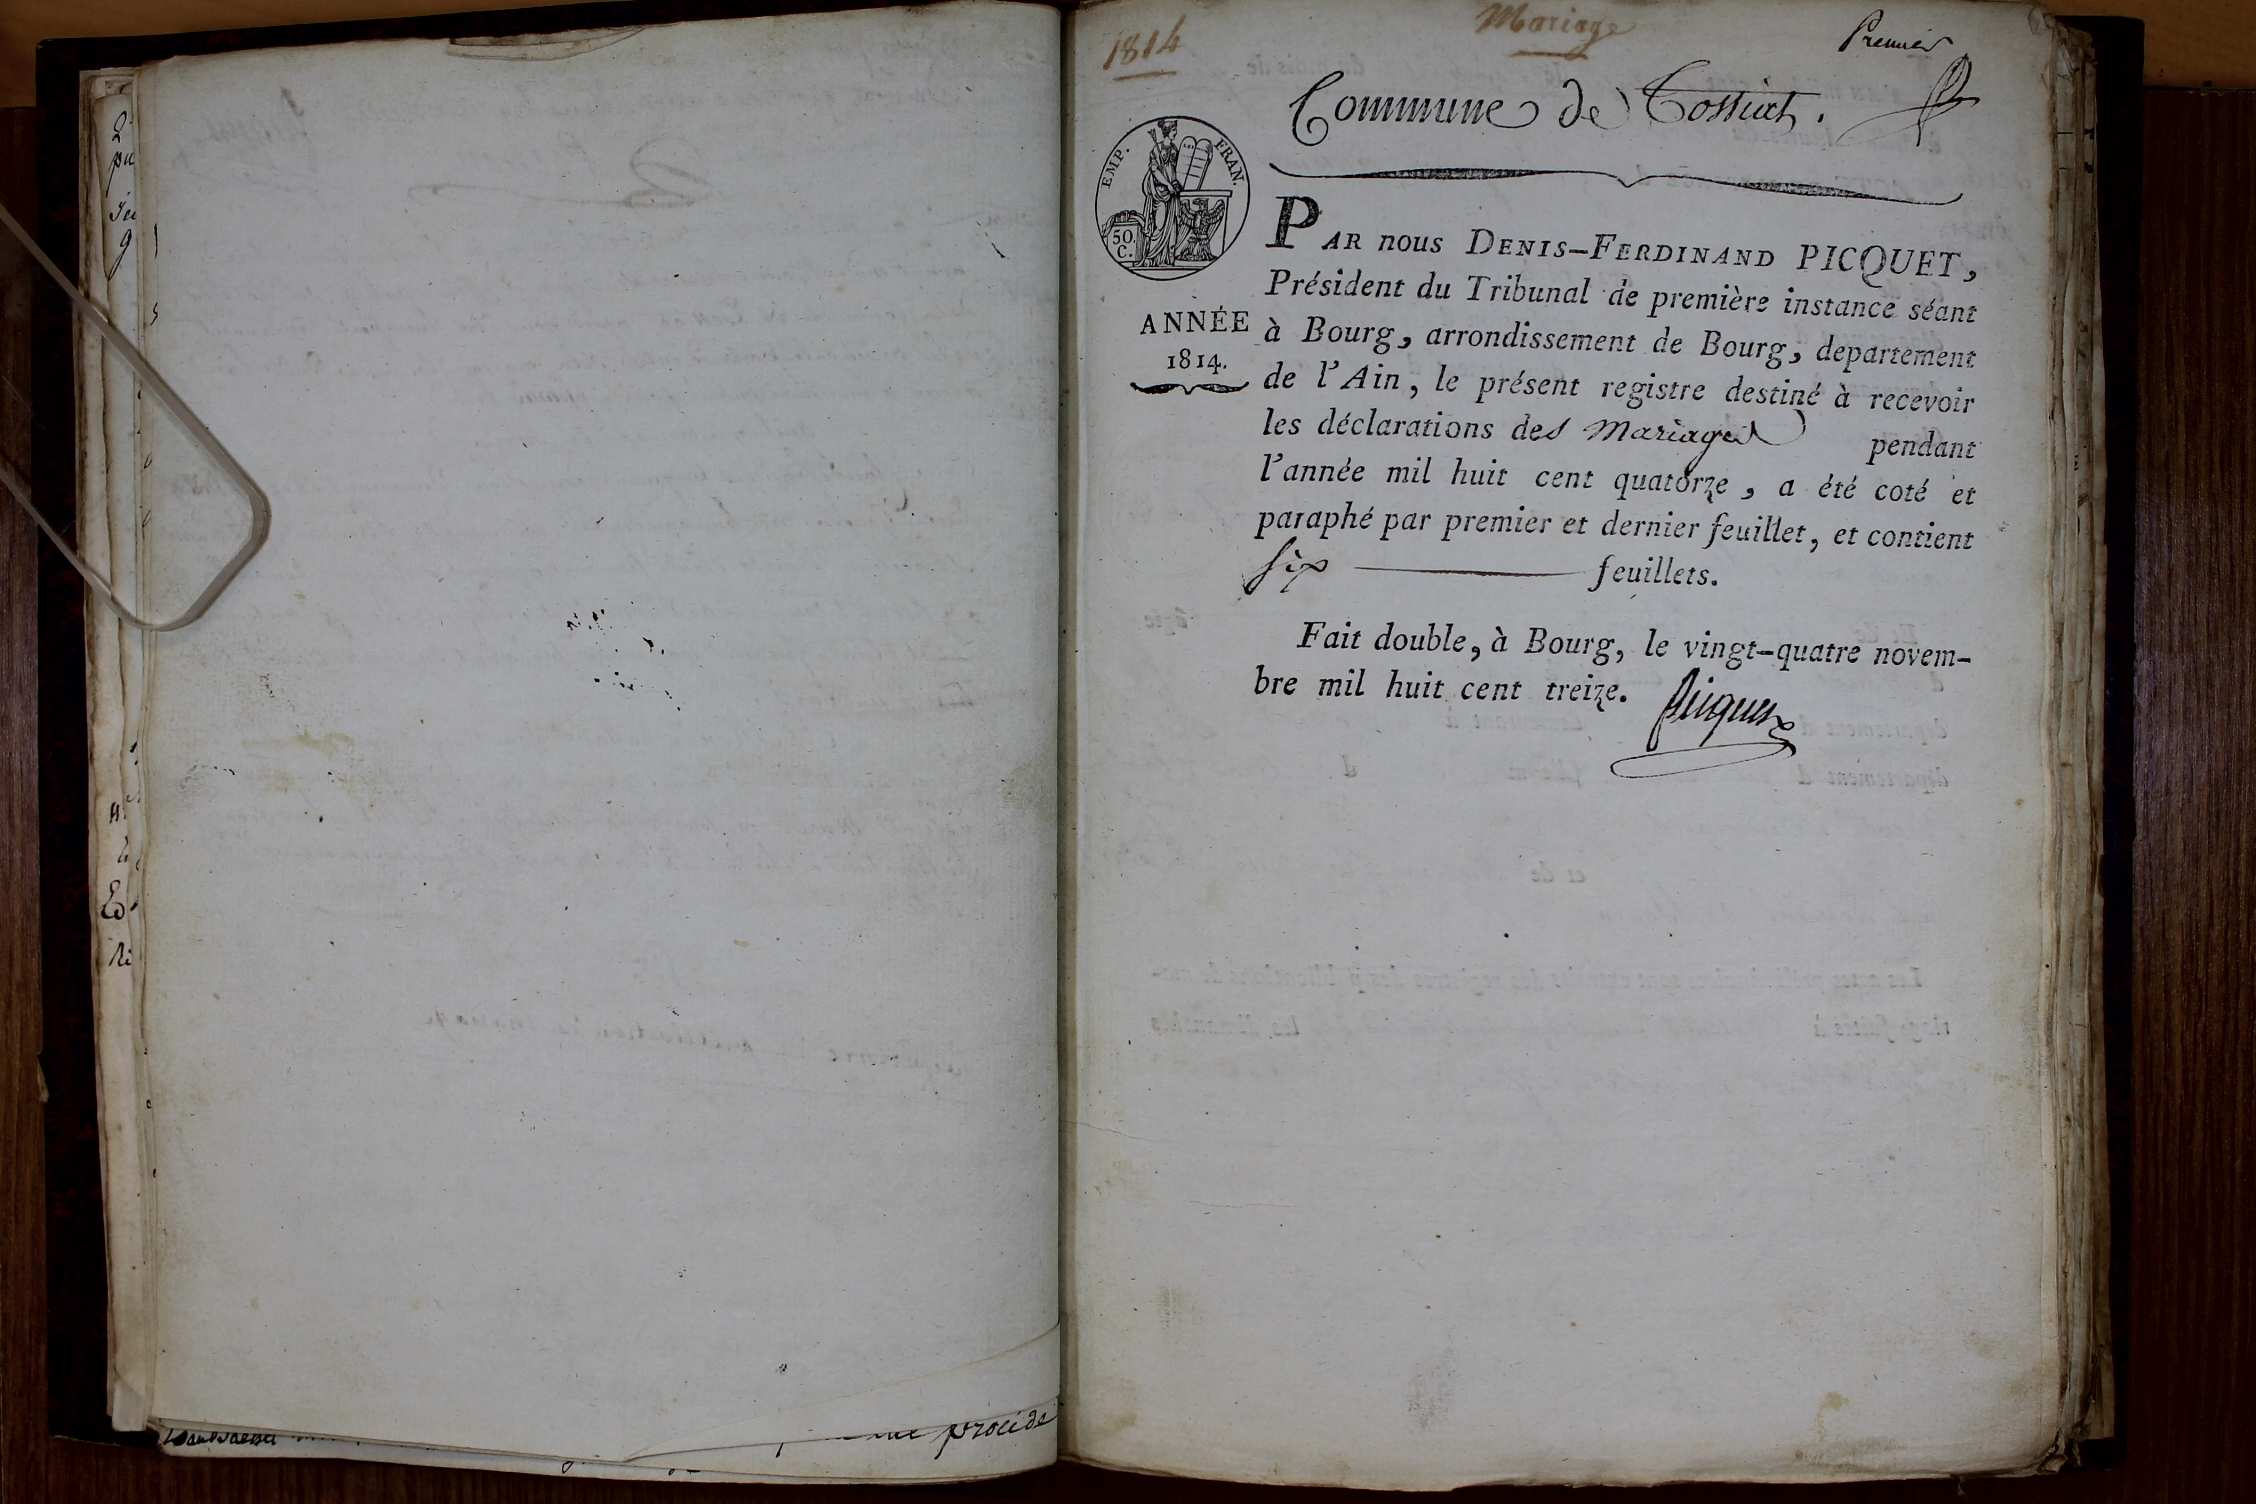 1814
Mariage
Premier
Commune de Tossiat.
EMP. FRAN.
50.
C.
ANNÉE
1814.
PAR nous DENIS-FERDINAND PICQUET,
Président du Tribunal de première instance séant
à Bourg, arrondissement de Bourg, departement
de l'Ain, le présent registre destiné à recevoir
les déclarations des Mariages pendant
l'année mil huit cent quatorze, a été coté et
paraphé par premier et dernier feuillet, et contient
six feuillets.
Fait double, à Bourg, le vingt-quatre novem-
bre mil huit cent treize.
Picquet
procédé